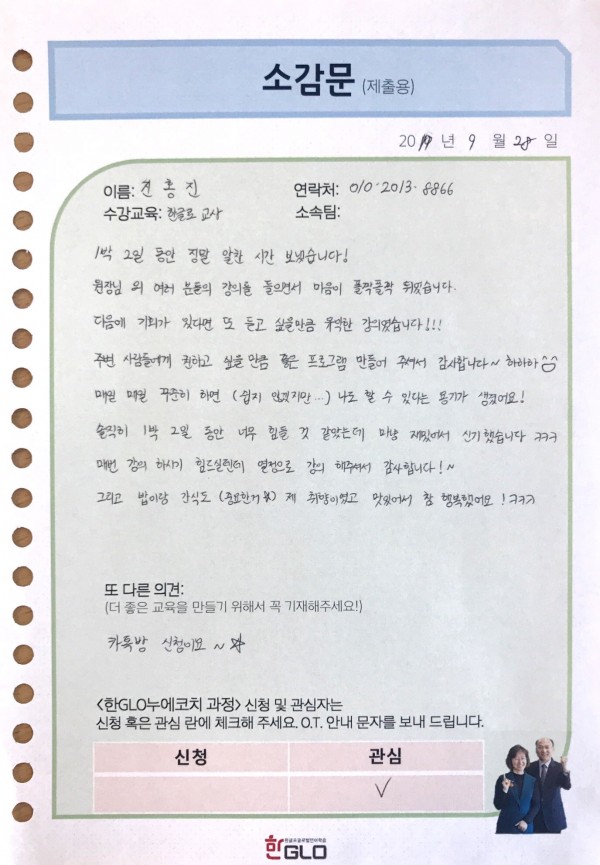 소감문 (제출용)
2019년 9월 28일
이름: 전홍진 연락처: 010-2013-8866
수강교육: 한글로 교사 소속팀:
1박 2일 동안 정말 알찬 시간 보냈습니다!
원장님 외 여러 분들의 강의를 들으면서 마음이 폴짝폴짝 뛰었습니다.
다음에 기회가 있다면 또 듣고 싶을만큼 유익한 강의였습니다!!!
주변 사람들에게 권하고 싶을 만큼 좋은 프로그램 만들어 주셔서 감사합니다~ 하하하^^
매일 매일 꾸준히 하면 (쉽지 않겠지만...) 나도 할 수 있다는 용기가 생겼어요!
솔직히 1박 2일 동안 너무 힘들 것 같았는데 마냥 재밌어서 신기했습니다 ㅋㅋㅋ
매번 강의 하시기 힘드실텐데 열정으로 강의 해주셔서 감사합니다!~
그리고 밥이랑 간식도 (중요한거☆) 제 취향이였고 맛있어서 참 행복했어요! ㅋㅋㅋ
또 다른 의견:
(더 좋은 교육을 만들기 위해서 꼭 기재해주세요!)
카톡방 신청이요~☆
<한GLO누에코치 과정> 신청 및 관심자는
신청 혹은 관심 란에 체크해 주세요. O.T. 안내 문자를 보내 드립니다.
신청 관심
✓
한GLO